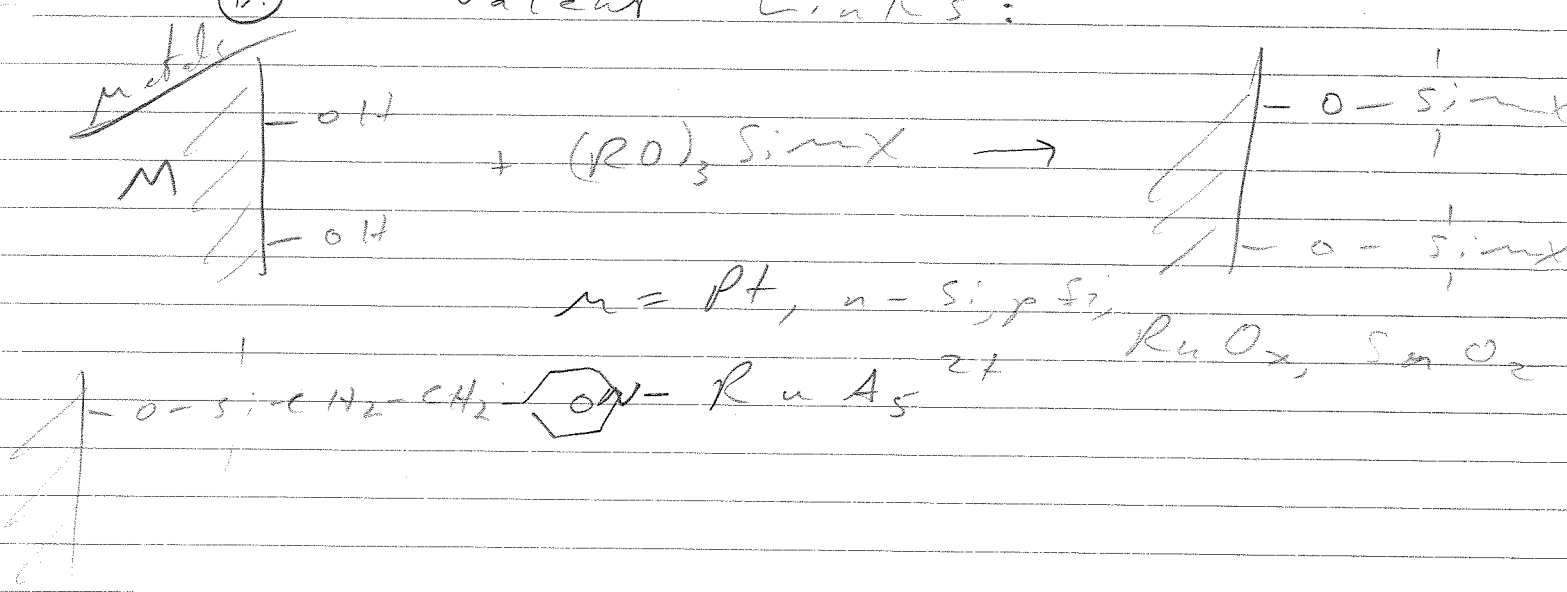 valent Links:
metals
M
- OH
- OH
+ (RO)3 Si~X →
- O - Si~X
- O - Si~X
M = Pt, n-Si, p Si, RuOx, SnO2
- O - Si-CH2-CH2- N- RuA5 2+